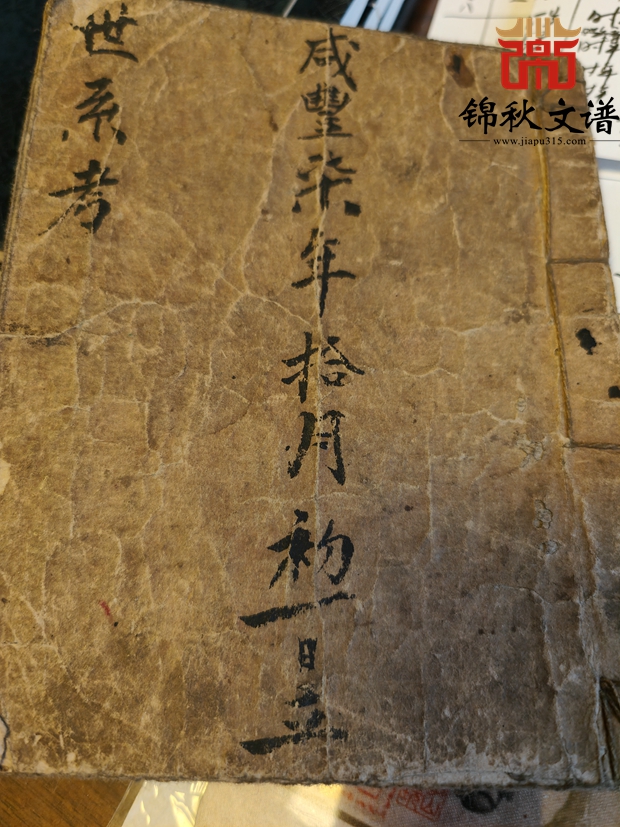 咸豐柒年拾月初一日立
世系考
锦秋文谱
www.jiapu315.com